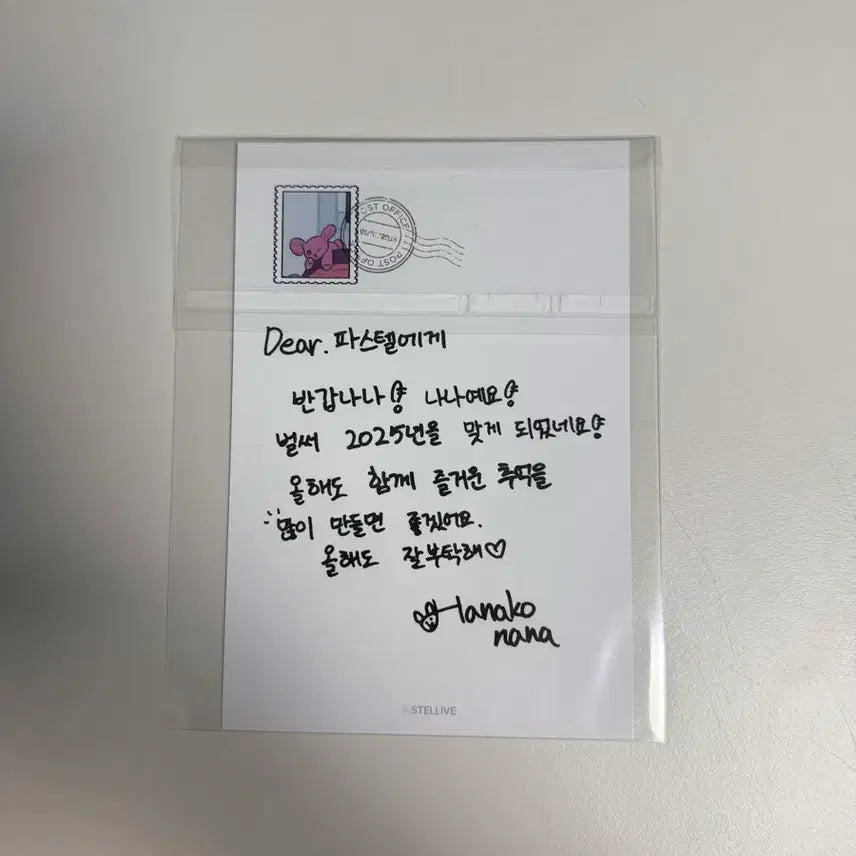 POST OFFICE
POST OF
Dear. 파스텔에게
반갑나나 나나예요
벌써 2025년을 맞게 되었네요
올해도 함께 즐거운 추억을
많이 만들면 좋겠어요.
올해도 잘부탁해♡
Hanako
nana
©STELLIVE